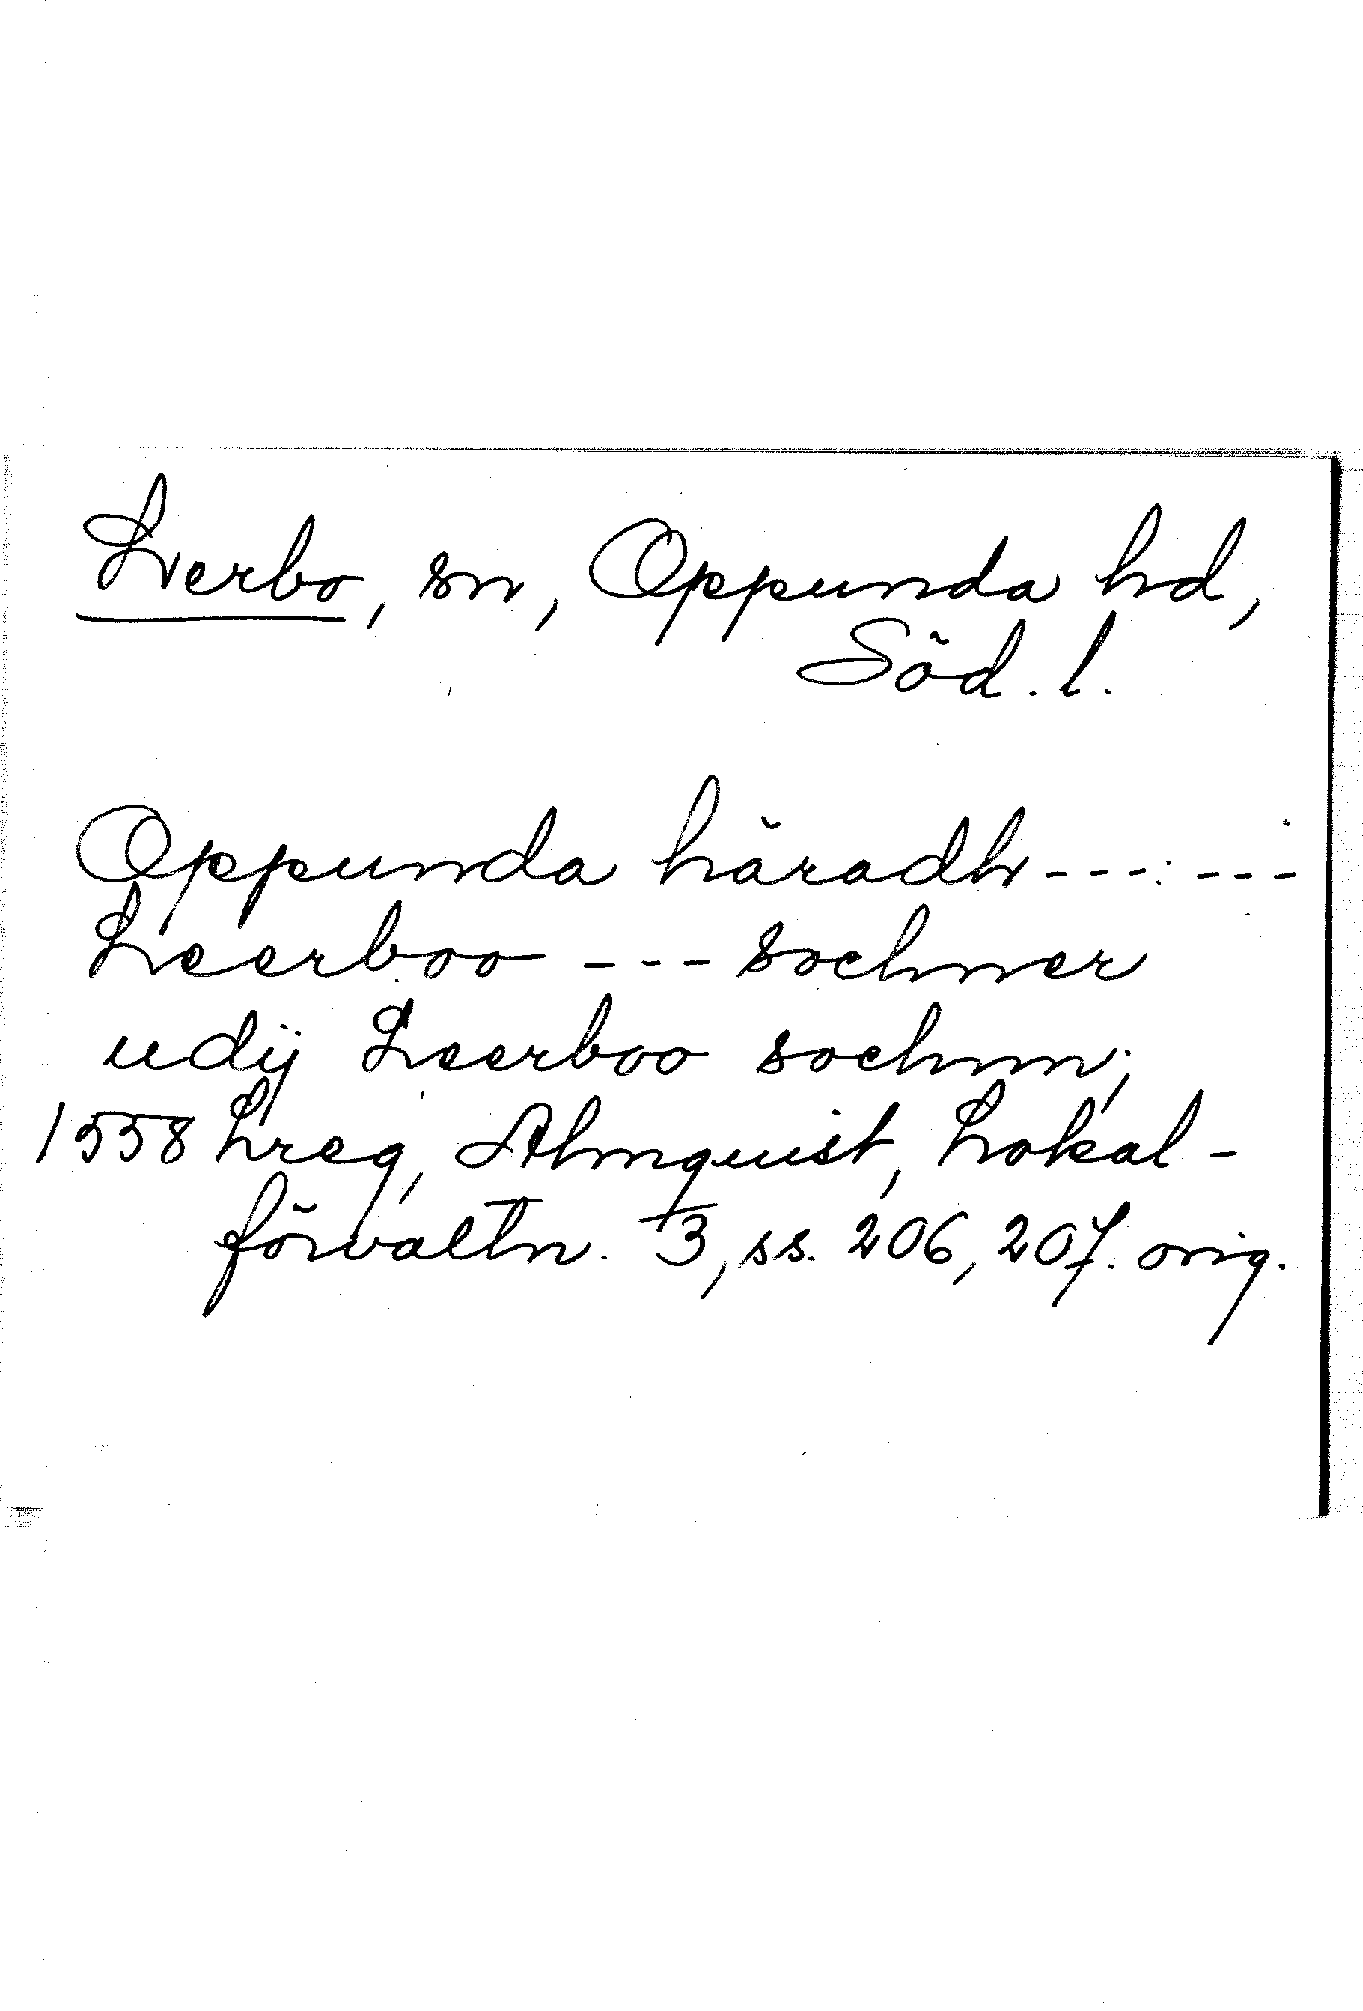 Lerbo, sn, Oppunda hd,
Söd. l.
Oppunda häradh --- : ---
Leerboo --- sochner
udij Leerboo sochnn;
1558 Lreg, Almquist, Lokal-
förvaltn. 3, ss. 206, 207. orig.